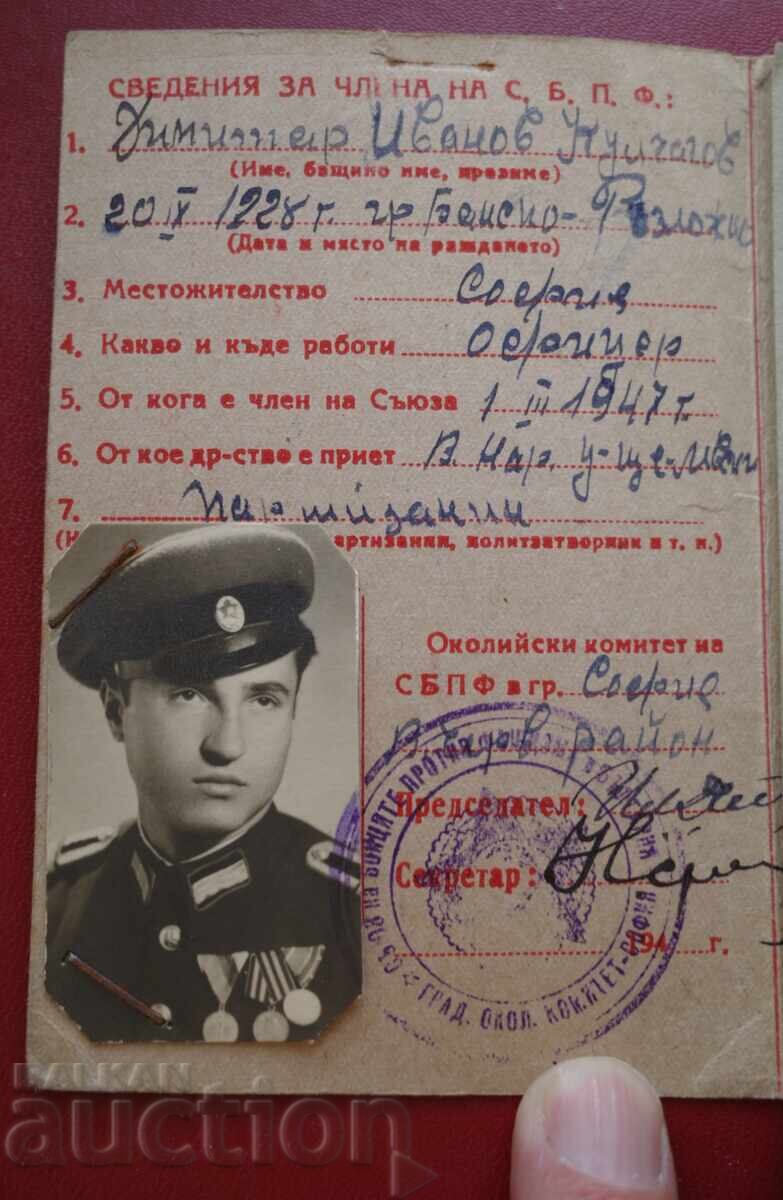 СВЕДЕНИЯ ЗА ЧЛЕНА НА С. Б. П. Ф.:
1. Димитар Иванов Кулчагов
(Име, бащино име, презиме)
2. 20 IX 1228 г. гр Банско - Разложко
(Дата и място на раждането)
3. Местожителство София
4. Какво и къде работи Офицер
5. От кога е член на Съюза 1 III 1947 г.
6. От кое др-ство е приет В. Нар. у-ще
7. партизанин
артизанин, политзатворник и т. н.)
Околийски комитет на
СБПФ в гр. София
район
Председател:
Секретар:
194 г.
СЪЮЗ НА БОЙЦИТЕ ПРОТИВ
ГРАД. ОКОЛ. КОМИТЕТ-СОФИЯ
BALKAN
auction